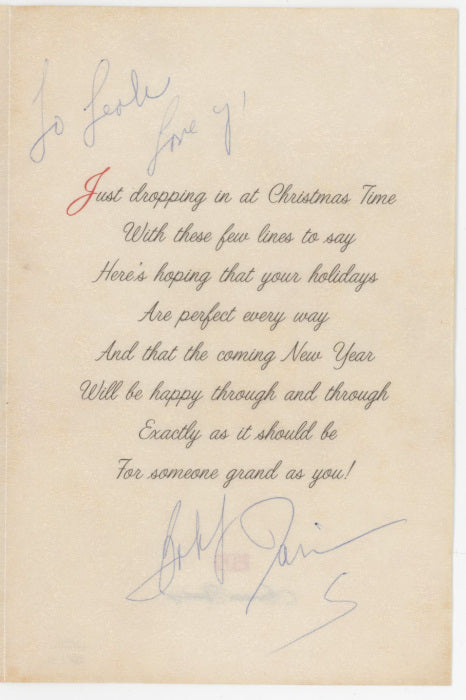 To
Love y'
Just dropping in at Christmas Time
With these few lines to say
Here's hoping that your holidays
Are perfect every way
And that the coming New Year
Will be happy through and through
Exactly as it should be
For someone grand as you!
Bobby Darin